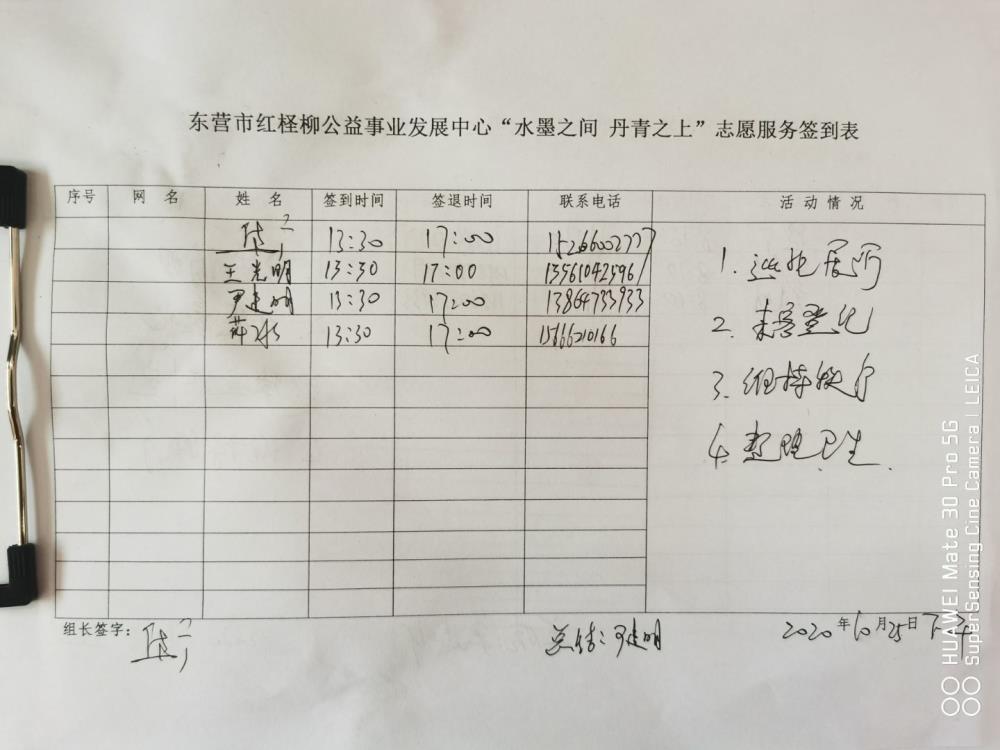 东营市红柽柳公益事业发展中心“水墨之间 丹青之上”志愿服务签到表
序号 网 名 姓 名 签到时间 签退时间 联系电话 活 动 情 况
13:30 17:00 15266002777
王光明 13:30 17:00 13561042596
尹建明 13:30 17:00 13864733933
萍水 13:30 17:00 15666210166
1. 巡视展所
2. 来客登记
3. 维持秩序
4. 整理卫生.
组长签字:
总结: 尹建明
2020年10月25日 下午
HUAWEI Mate 30 Pro 5G
SuperSensing Cine Camera | LEICA